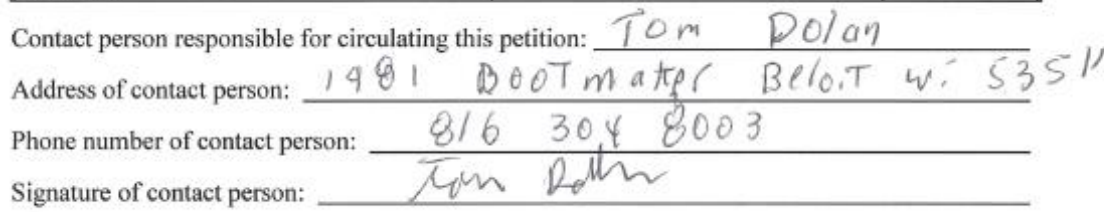 Contact person responsible for circulating this petition: Tom Dolan
Address of contact person: 1981 BooTmaker Beloit wi 53511
Phone number of contact person: 816 304 8003
Signature of contact person: Tom Dolan